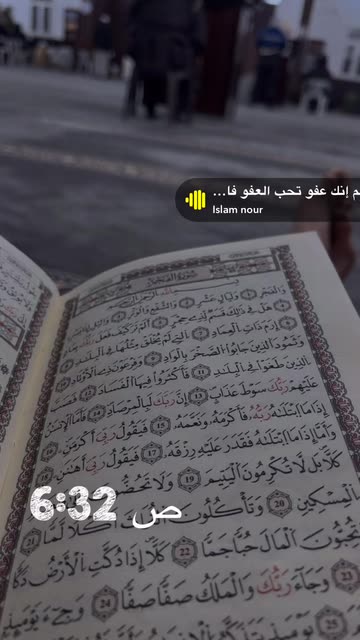 م إنك عفو تحب العفو فا...
Islam nour
سُورَةُ الفَجْرِ
وَالْفَجْرِ ١ وَلَيَالٍ عَشْرٍ ٢ وَالشَّفْعِ وَالْوَتْرِ ٣ وَالَّيْلِ
هَلْ فِي ذَٰلِكَ قَسَمٌ لِّذِي حِجْرٍ ٥ أَلَمْ تَرَ كَيْفَ فَعَلَ رَبُّكَ
إِرَمَ ذَاتِ الْعِمَادِ ٧ الَّتِي لَمْ يُخْلَقْ مِثْلُهَا فِي الْبِلَٰدِ ٨
وَثَمُودَ الَّذِينَ جَابُوا الصَّخْرَ بِالْوَادِ ٩ وَفِرْعَوْنَ ذِي الْأَوْتَادِ
الَّذِينَ طَغَوْا فِي الْبِلَٰدِ ١١ فَأَكْثَرُوا فِيهَا الْفَسَادَ ١٢ فَصَبَّ
عَلَيْهِمْ رَبُّكَ سَوْطَ عَذَابٍ ١٣ إِنَّ رَبَّكَ لَبِالْمِرْصَادِ ١٤ فَأَمَّا الْإِنسَٰنُ
إِذَا مَا ابْتَلَىٰهُ رَبُّهُ فَأَكْرَمَهُ وَنَعَّمَهُ ١٥ فَيَقُولُ رَبِّي أَكْرَمَنِ
وَأَمَّا إِذَا مَا ابْتَلَىٰهُ فَقَدَرَ عَلَيْهِ رِزْقَهُ ١٧ فَيَقُولُ رَبِّي أَهَٰنَنِ
كَلَّا بَل لَّا تُكْرِمُونَ الْيَتِيمَ ١٩ وَلَا تَحُضُّونَ
الْمِسْكِينِ ٢٠ وَتَأْكُلُونَ أَكْلًا لَّمًّا ٢١
وَتُحِبُّونَ الْمَالَ حُبًّا جَمًّا ٢٢ كَلَّا إِذَا دُكَّتِ الْأَرْضُ دَكًّا
٢٣ وَجَاءَ رَبُّكَ وَالْمَلَكُ صَفًّا صَفًّا ٢٤ وَجِاْيءَ يَوْمَئِذٍ
٢٥
6:32 ص